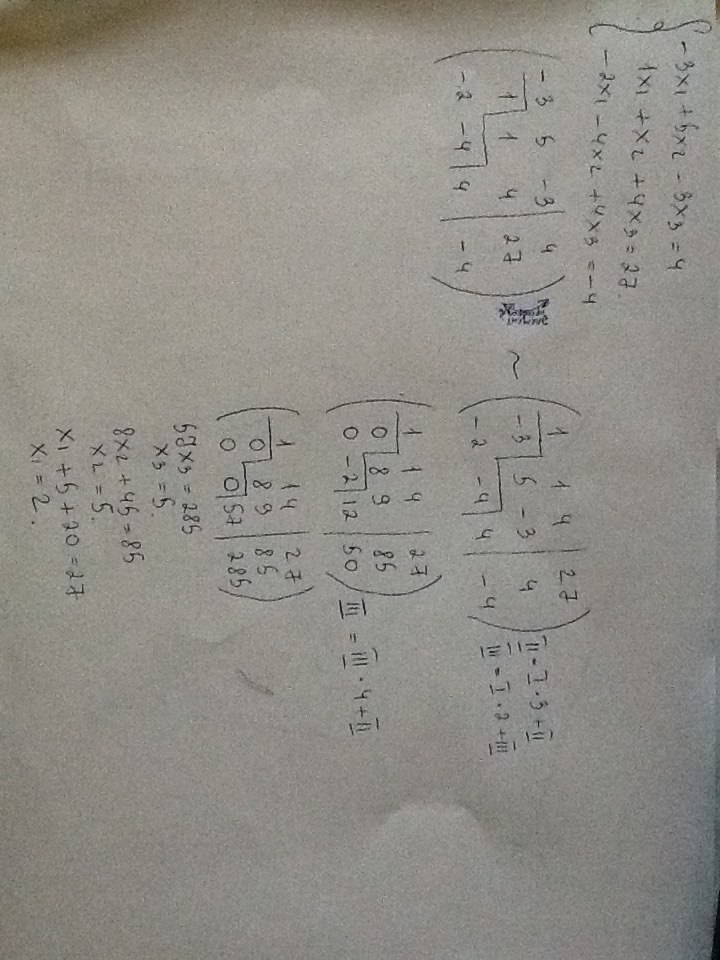 -3x1 + 5x2 - 3x3 = 4
1x1 + x2 + 4x3 = 27.
-2x1 - 4x2 + 4x3 = -4
-3 5 -3 | 4
1 1 4 | 27
-2 -4 4 | -4
~
1 1 4 | 27
-3 5 -3 | 4 II = I · 3 + II
-2 -4 4 | -4 III = I · 2 + III
1 1 4 | 27
0 8 9 | 85
0 -2 12 | 50 III = III · 4 + II
1 1 4 | 27
0 8 9 | 85
0 0 57 | 285
57x3 = 285
x3 = 5.
8x2 + 45 = 85
x2 = 5.
x1 + 5 + 20 = 27
x1 = 2.